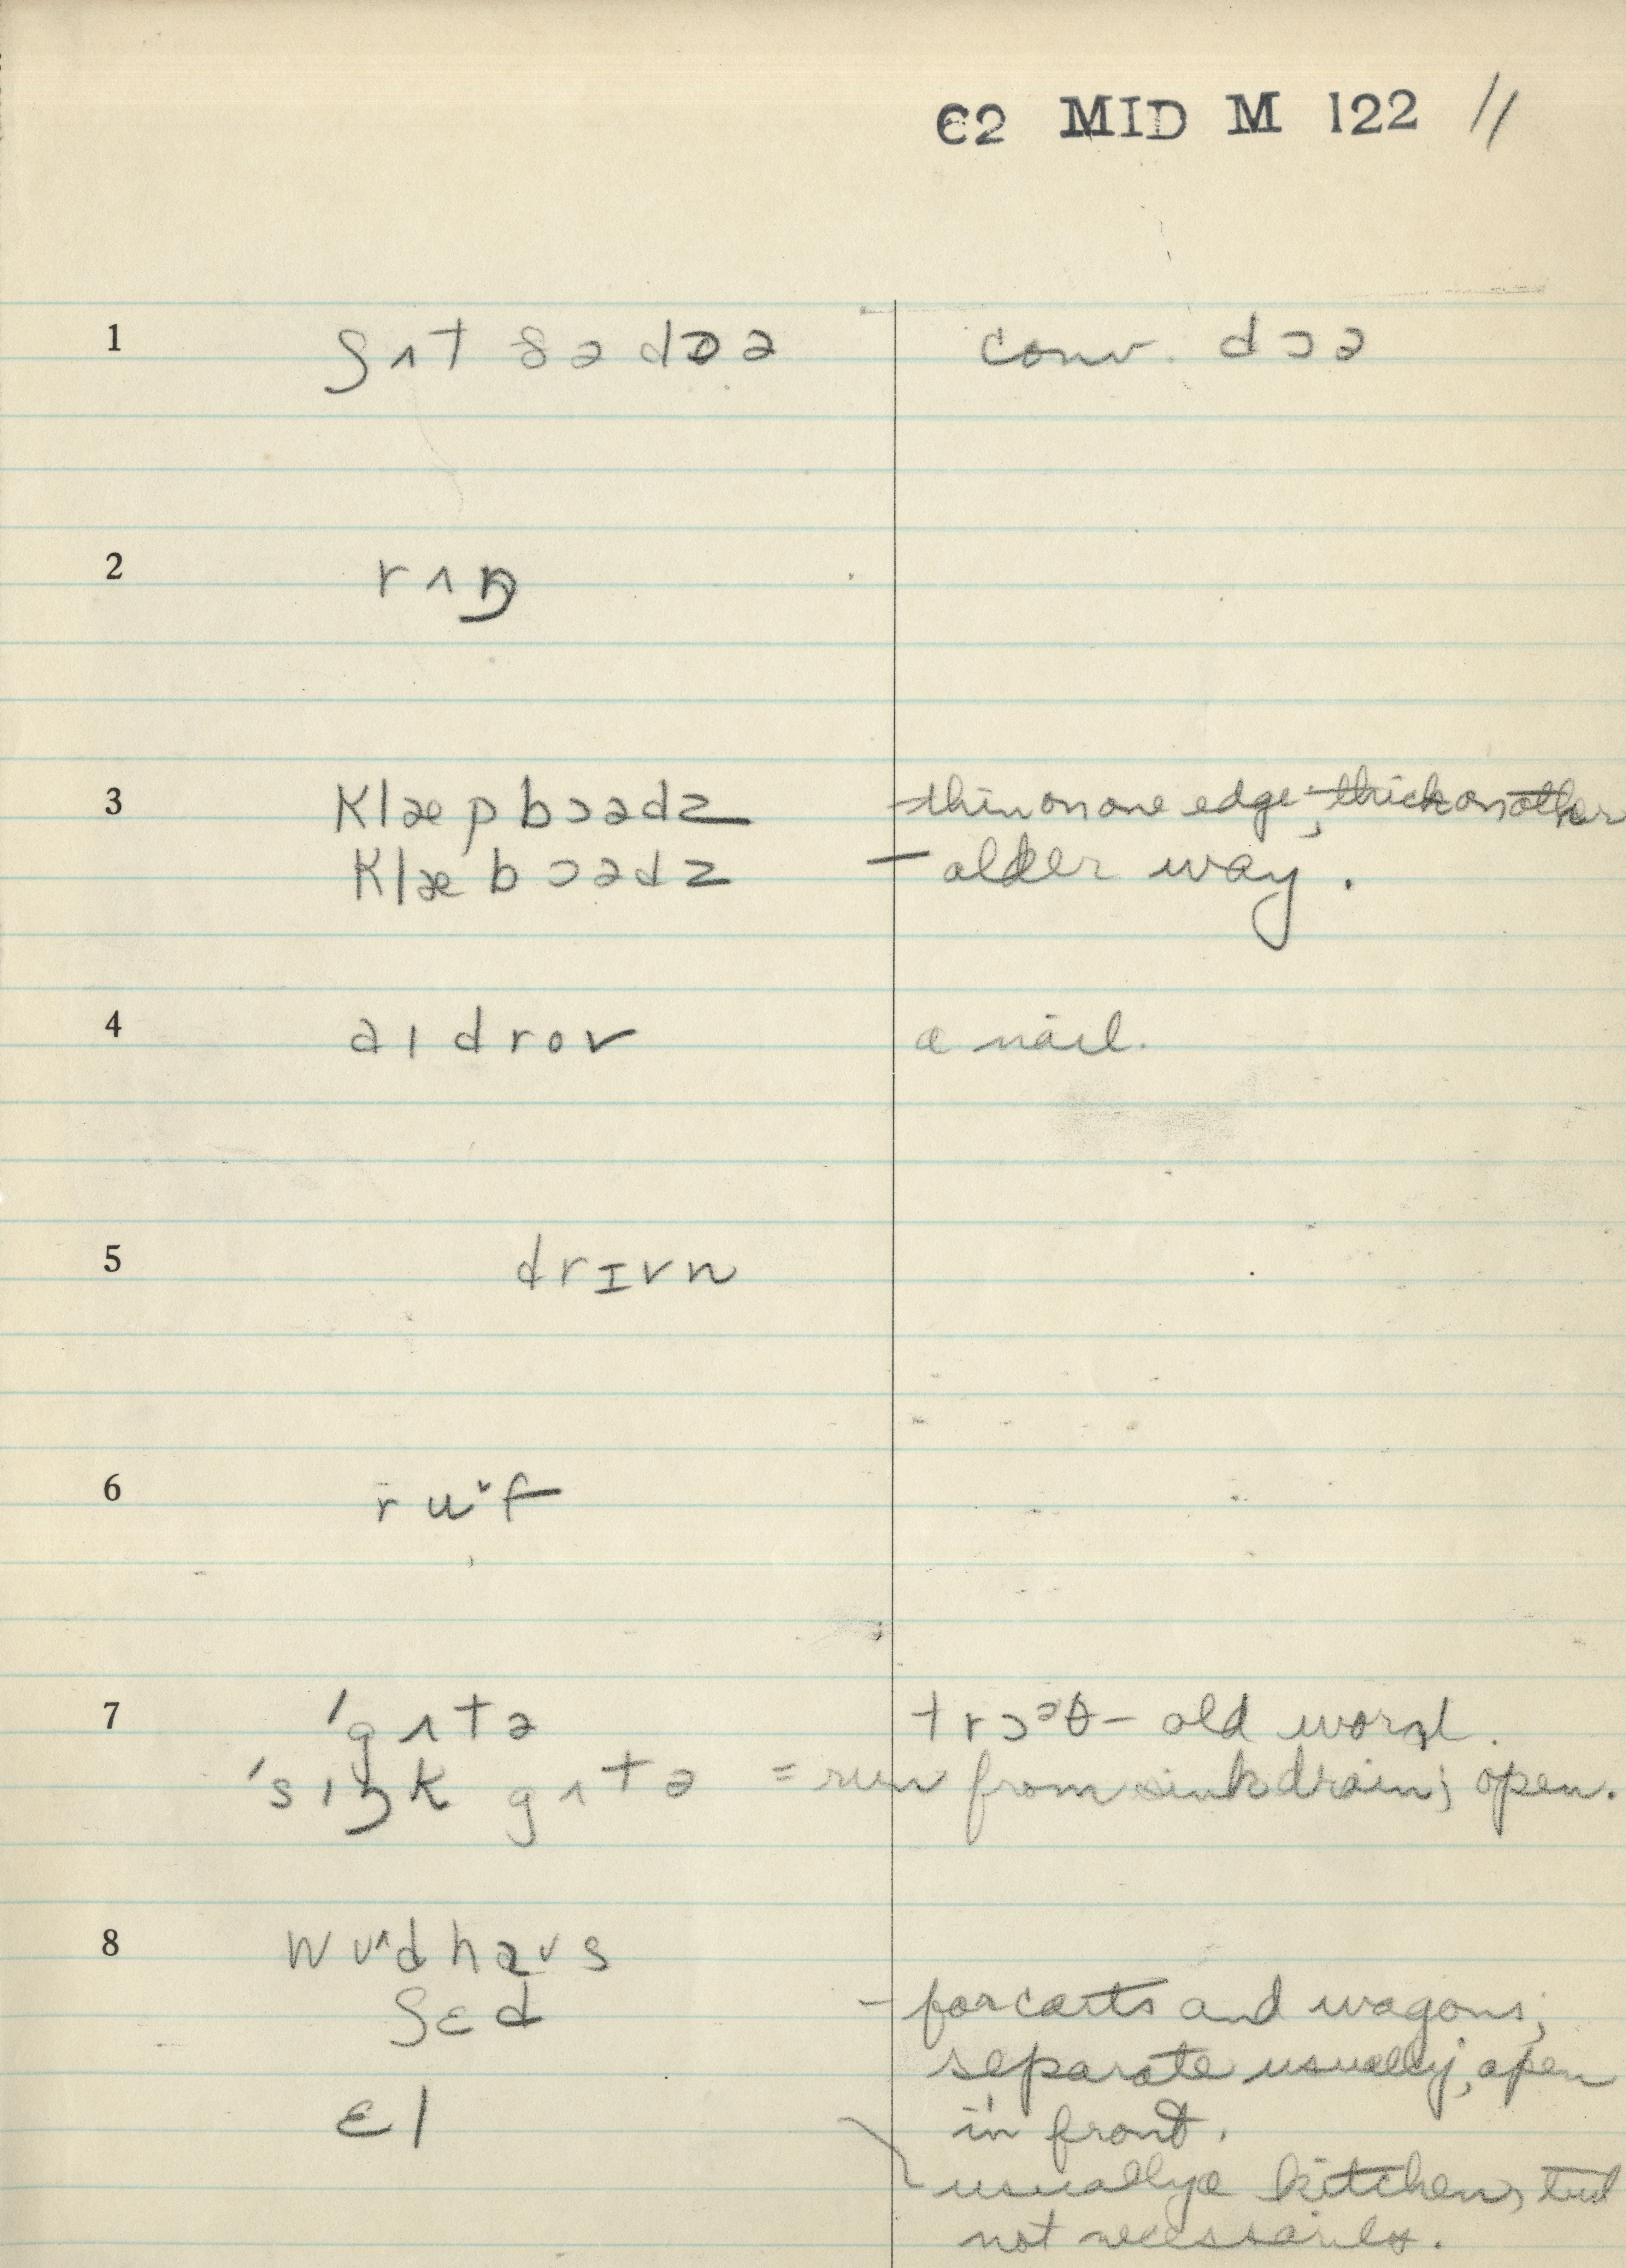 C2 MID M 122 11
1 ʃʌt ðə dɒə conv. dɔə
2 rʌŋ
3 klæpbɔədz - thin on one edge; thick on other
klæbɔədz - older way.
4 aɪdrov a nail.
5 drɪvn
6 ruˇf
7 'gʌtə trɔᵊθ - old word.
'sɪŋk gʌtə = run from sink drain; open.
8 wʊ^dhaʊs
ʃɛd - for carts and wagons;
separate usually, open
ɛl in front.
usually a kitchen, but
not necessarily.